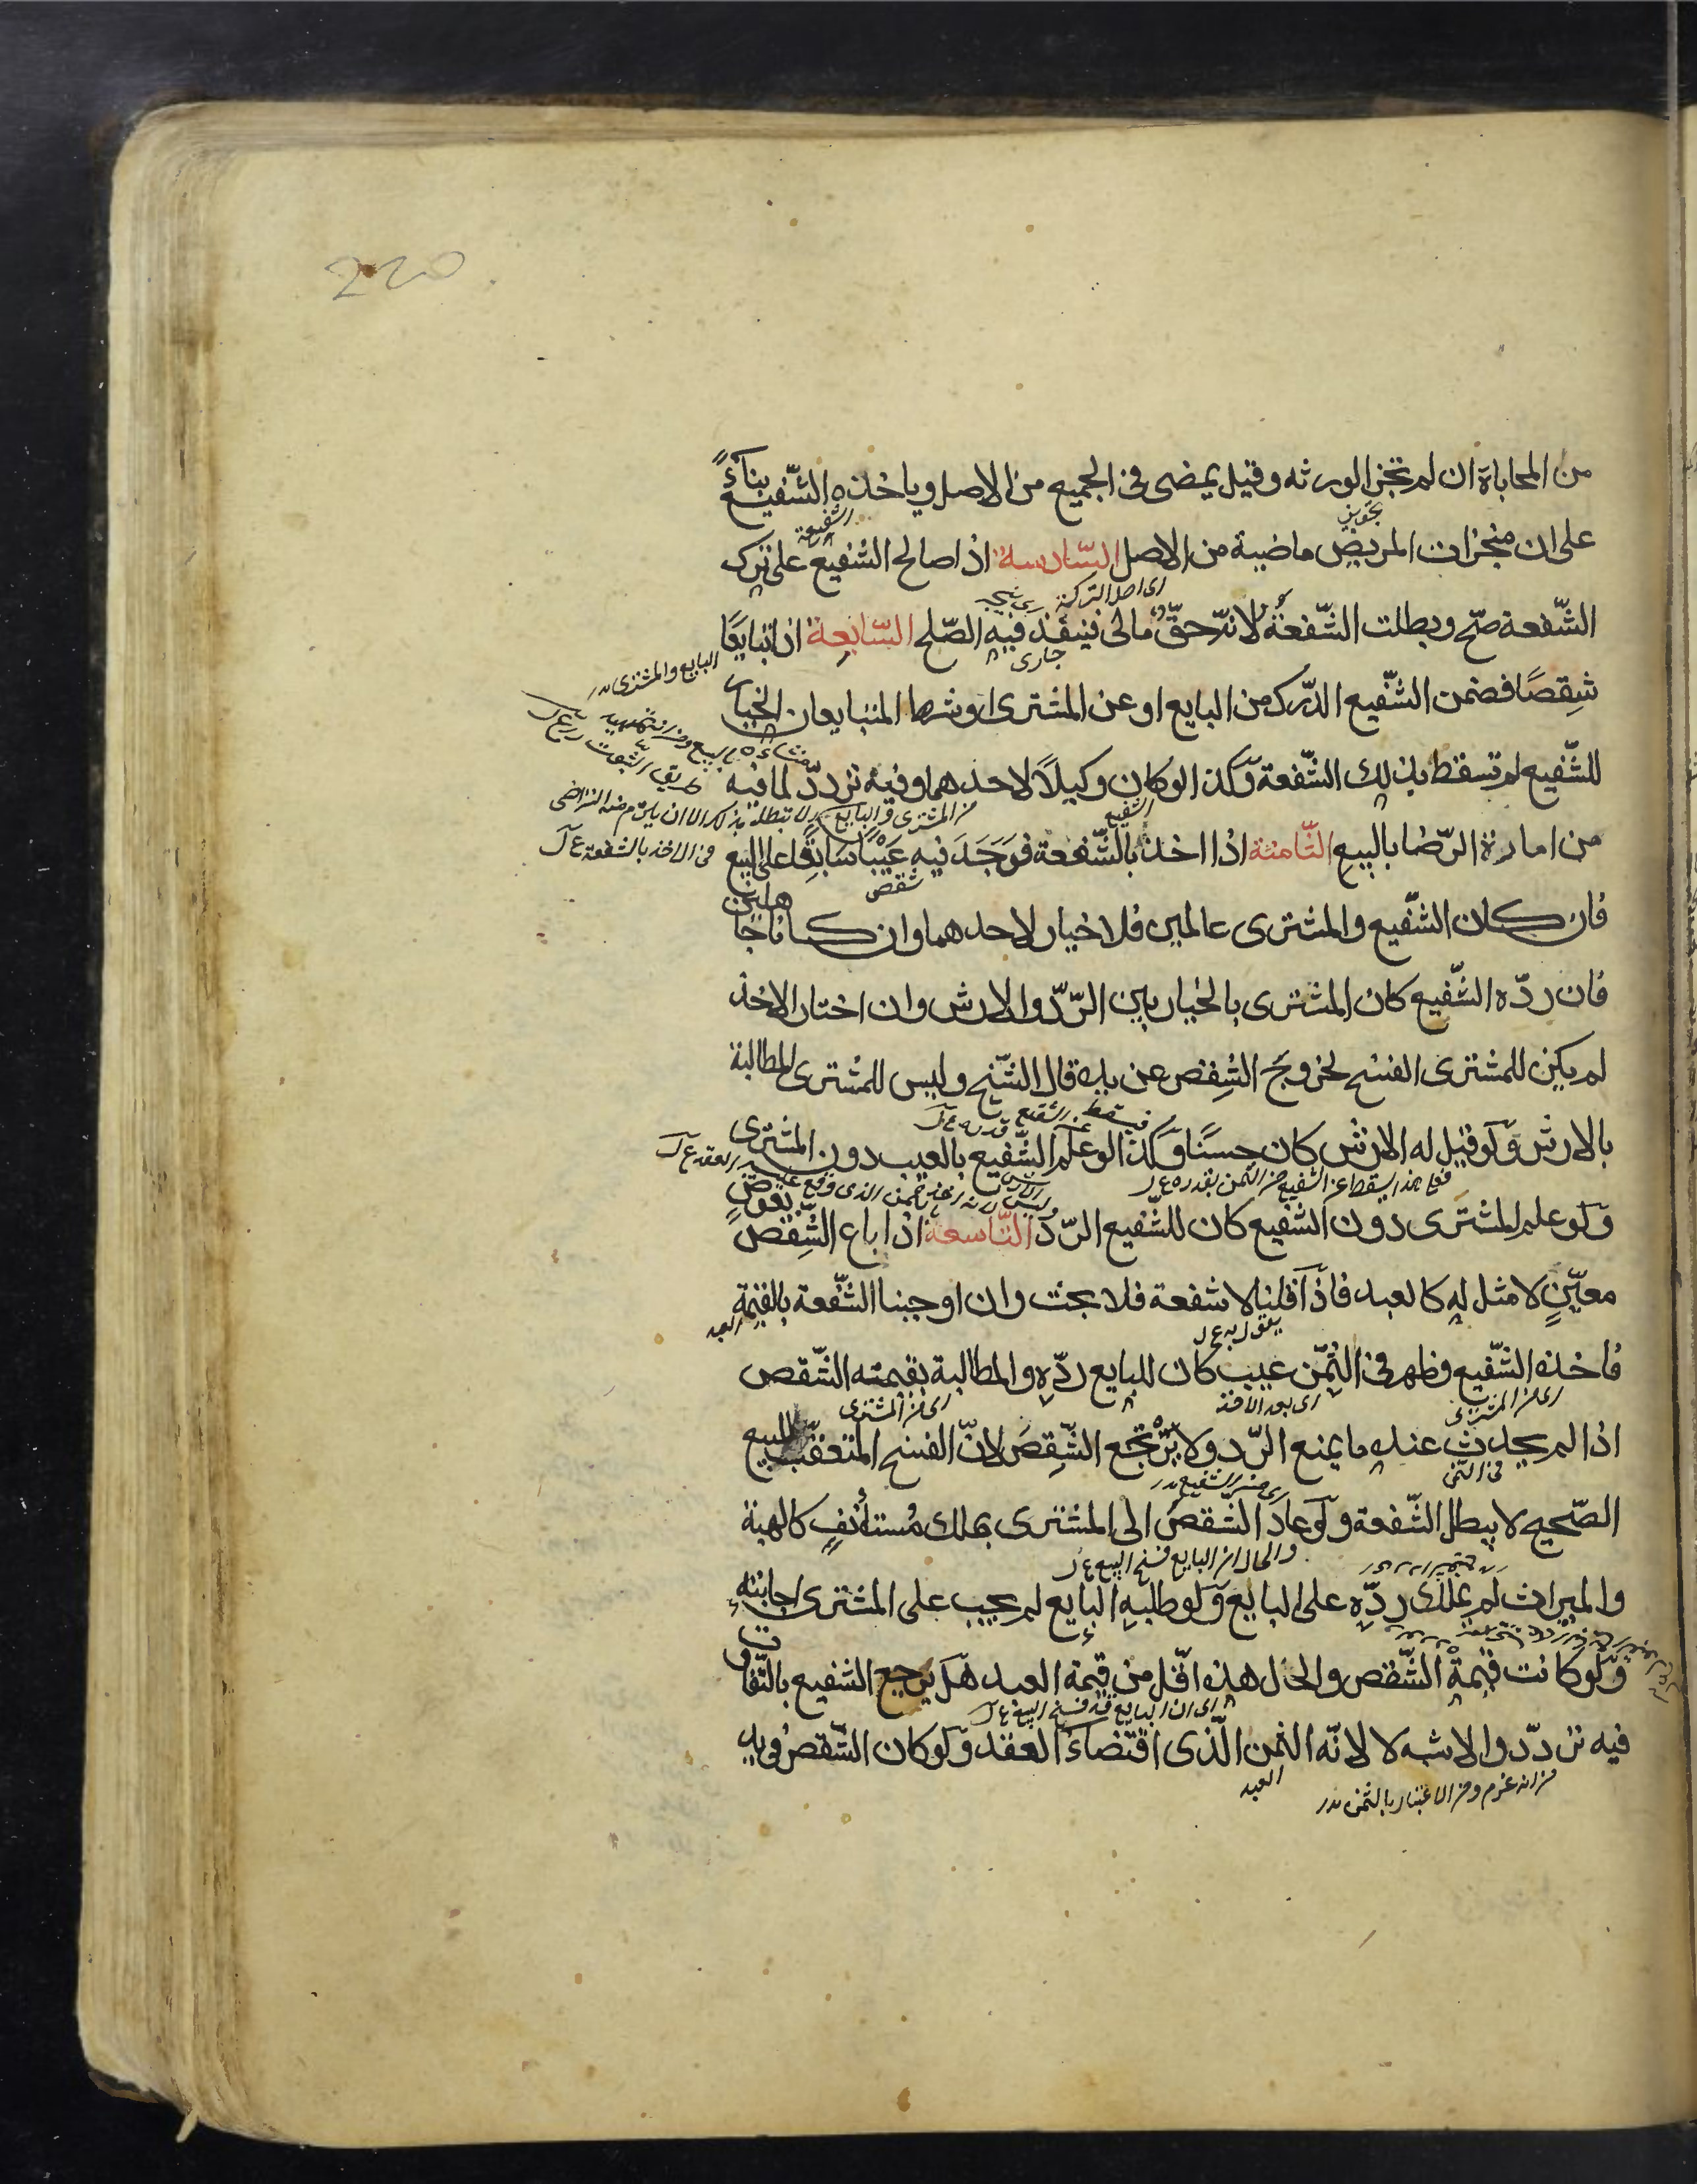 220
من المحاباة ان لم تجز الورثه وقيل يمضى فى الجميع من الاصل وياخذه الشّفيع بناءً
على ان منجزات المريض ماضية من الاصل السّادسة اذا صالح الشّفيع على ترك
الشّفعة صحّ وبطلت الشّفعة لانّه حقّ مالى فينفذ فيه الصّلح السّابعة اذا تبايعا
البايع والمشترى
شِقصًا فضمن الشّفيع الدّرك من البايع او عن المشترى او شرط المتبايعان الخيار
للشّفيع لم تسقط بذلك الشّفعة وكذا لو كان وكيلاً لاحدهما وفيه تردّد لما فيه
من المشترى والبايع
من امارة الرّضا بالبيع الثّامنة اذا اخذ بالشّفعة فوَجَدَ فيه عَيْبًا سَابِقًا على البيع
فى الاخذ بالشفعة ع ل
شقص
فان كان الشّفيع والمشترى عالمين فلا خيار لاحدهما وان كانا جاهلين
فان ردّه الشّفيع كان المشترى بالخيار بين الرّدّ والارش وان اختار الاخذ
لم يكن للمشترى الفسخ لخروج الشِقص عن يده قال الشّيخ وليس للمشترى المطالبة
بالارش ولو قيل له الارش كان حسنًا وكذا لو علم الشّفيع بالعيب دون المشترى
فعلى هذا يسقط عن الشفيع من الثمن بقدره ع ل
ولو علم المشترى دون الشّفيع كان للشّفيع الرّدّ التّاسعة اذا باع الشِّقص بعوضٍ
معيّنٍ لا مثل له كالعبد فاذا قلنا لا شفعة فلا بحث وان اوجبنا الشّفعة بالقيمة
يقول به ع ل
العبد
فاخذه الشّفيع وظهر فى الثّمن عيب كان للبايع ردّه والمطالبة بقيمته الشّقص
اى من المشترى
اى بعد الاخذ
اى من المشترى
اذا لم يحدث عنده ما يمنع الرّد ولا يرتجع الشّقِصَ لانّ الفسخ المتعقّب للبيع
فى الثمن
الصّحيح لا يبطل الشّفعة ولو عاد الشّقصُ الى المشترى بملك مُستأنفٍ كالهبة
والحال ان البايع فسخ البيع ع ل
والميراث لم يملك ردّه على البايع ولو طلبه البايع لم يجب على المشترى اجابته
ولو كانت قيمة الشّقص والحال هذه اقلّ من قيمة العبد هل يرجع الشفيع بالتّفاوت
اى ان البايع قد فسخ البيع ع ل
فيه تردّد والاشبه لا لانّه الثمن الّذى اقتضاه العقد ولو كان الشّقص فى يد
العبد
من انه غرم ومن الاعتبار بالثمن